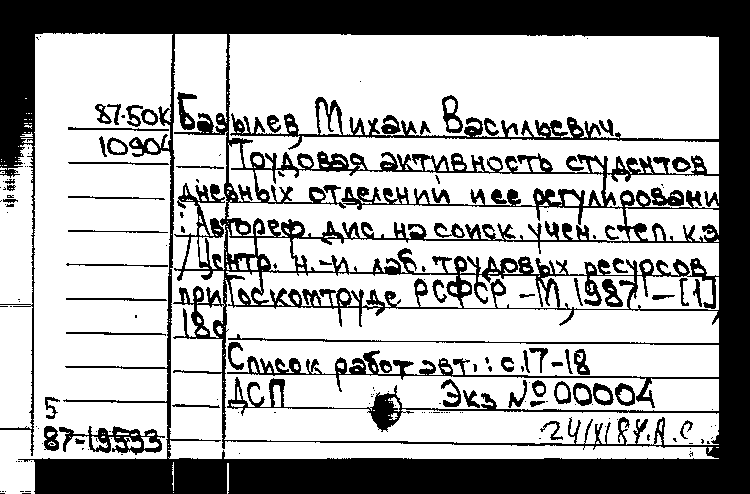 87-50к Базылев, Михаил Васильевич.
10904 Трудовая активность студентов
дневных отделений и ее регулировани
: Автореф. дис. на соиск. учен. степ. к.э
/ Центр. н.-и. лаб. трудовых ресурсов
при Госкомтруде РСФСР. - М., 1987. - [1],
18с.
Список работ авт.: с.17-18
ДСП Экз № 00004
5
87-19533
24/XI 87. А.С.